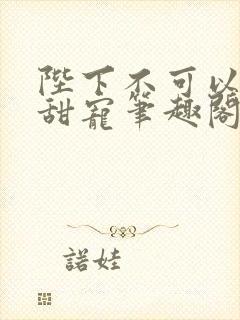 陛下不可以
甜寵筆趣閣
諾娃